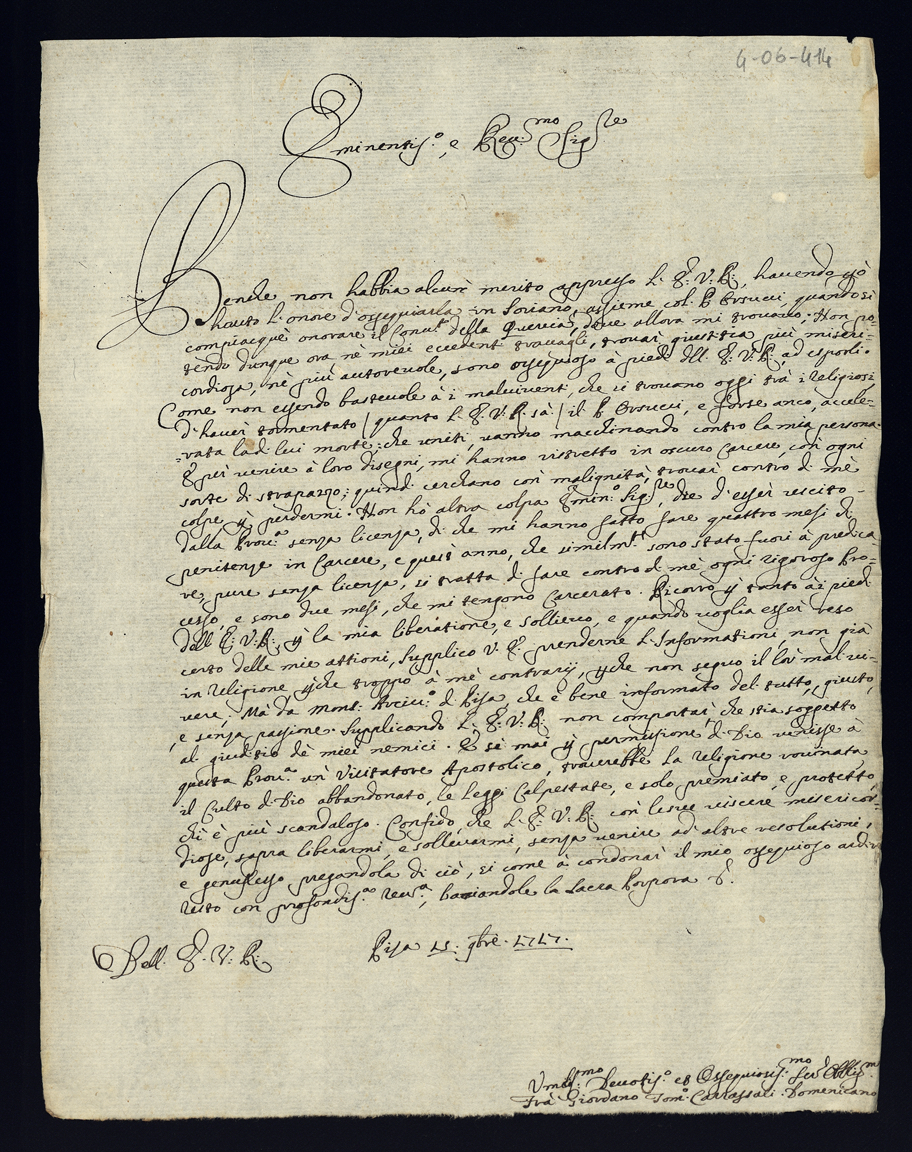 4-06-414
Eminentis.º, e Reu.mo Sig.re
Benche non habbia alcun merito appresso l'E. V. R., havendo già
havuto l'onore d'ossequiarla in Soriano, assieme col P. Orsucci, quando si
compiacque onorare il Conu.to della Quercia, dove allora mi trovavo; Non po-
tendo dunque ora nè miei eccedenti travagli, trovar giustizia più miseri-
cordiosa, nè più autorevole, sono ossequioso à piedi dell'E. V. R. ad esporli.
Come non essendo bastevole à i malviventi, che si trovano oggi trà i Religiosi,
d'haver tormentato / quanto l'E. V. R. sà / il P. Orsucci, e forse anco, accele-
rata la di lui morte: che uniti, vanno macchinando contro la mia persona.
E per venire à loro disegni, mi hanno ristretto in oscuro Carcere, con ogni
sorte di strapazzo; quindi cercano con malignità, trovar contro di mè
colpe, p perdermi. Non hò altra colpa Emin.º Sig.re, che d'esser uscito
dalla Prou.a senza licenza, di che mi hanno fatto fare quattro mesi di
penitenze in Carcere, e quest'anno, che similm.te sono stato fuori à predica-
re, pure senza licenza, si tratta di fare contro di mè ogni rigoroso Pro-
cesso, e sono due mesi, che mi tengono Carcerato. Ricorro p tanto ai piedi
dell'E. V. R. p la mia liberatione, e sollievo, e quando voglia esser reso
certo delle mie attioni, supplico V. E. prenderne l'Informationi, non già
in Religione pche troppo à mè contrarij, pche non seguo il lor mal vi-
vere, Mà da Mons. Arciu.º di Pisa, che è bene informato del tutto, giusto,
e senza passione. Supplicando l'E. V. R. non comportar, che stia soggetto
al giuditio de miei nemici. E se mai p permissione di Dio venisse à
questa Prou.a un Visitatore Apostolico, troverebbe la Religione rovinata
il Culto di Dio abbandonato, le Leggi Calpestate, e solo premiato, e protetto,
chi è più scandaloso. Confido, che l'E. V. R. con le sue viscere misericor-
diose, saprà liberarmi, e sollevarmi, senza venire ad altre resolutioni,
e genuflesso pregandola di ciò, si come à condonar il mio ossequioso ardir
resto con profondis.a reu.a, baciandole la Sacra Porpora &.
Dell'E. V. R. Pisa 15: 9bre. 1717.
Umil.mo Deuotis.º et Ossequiosis.mo Ser.e Obblig.mo
Frà Giordano Tom.º Carrassali Domenicano